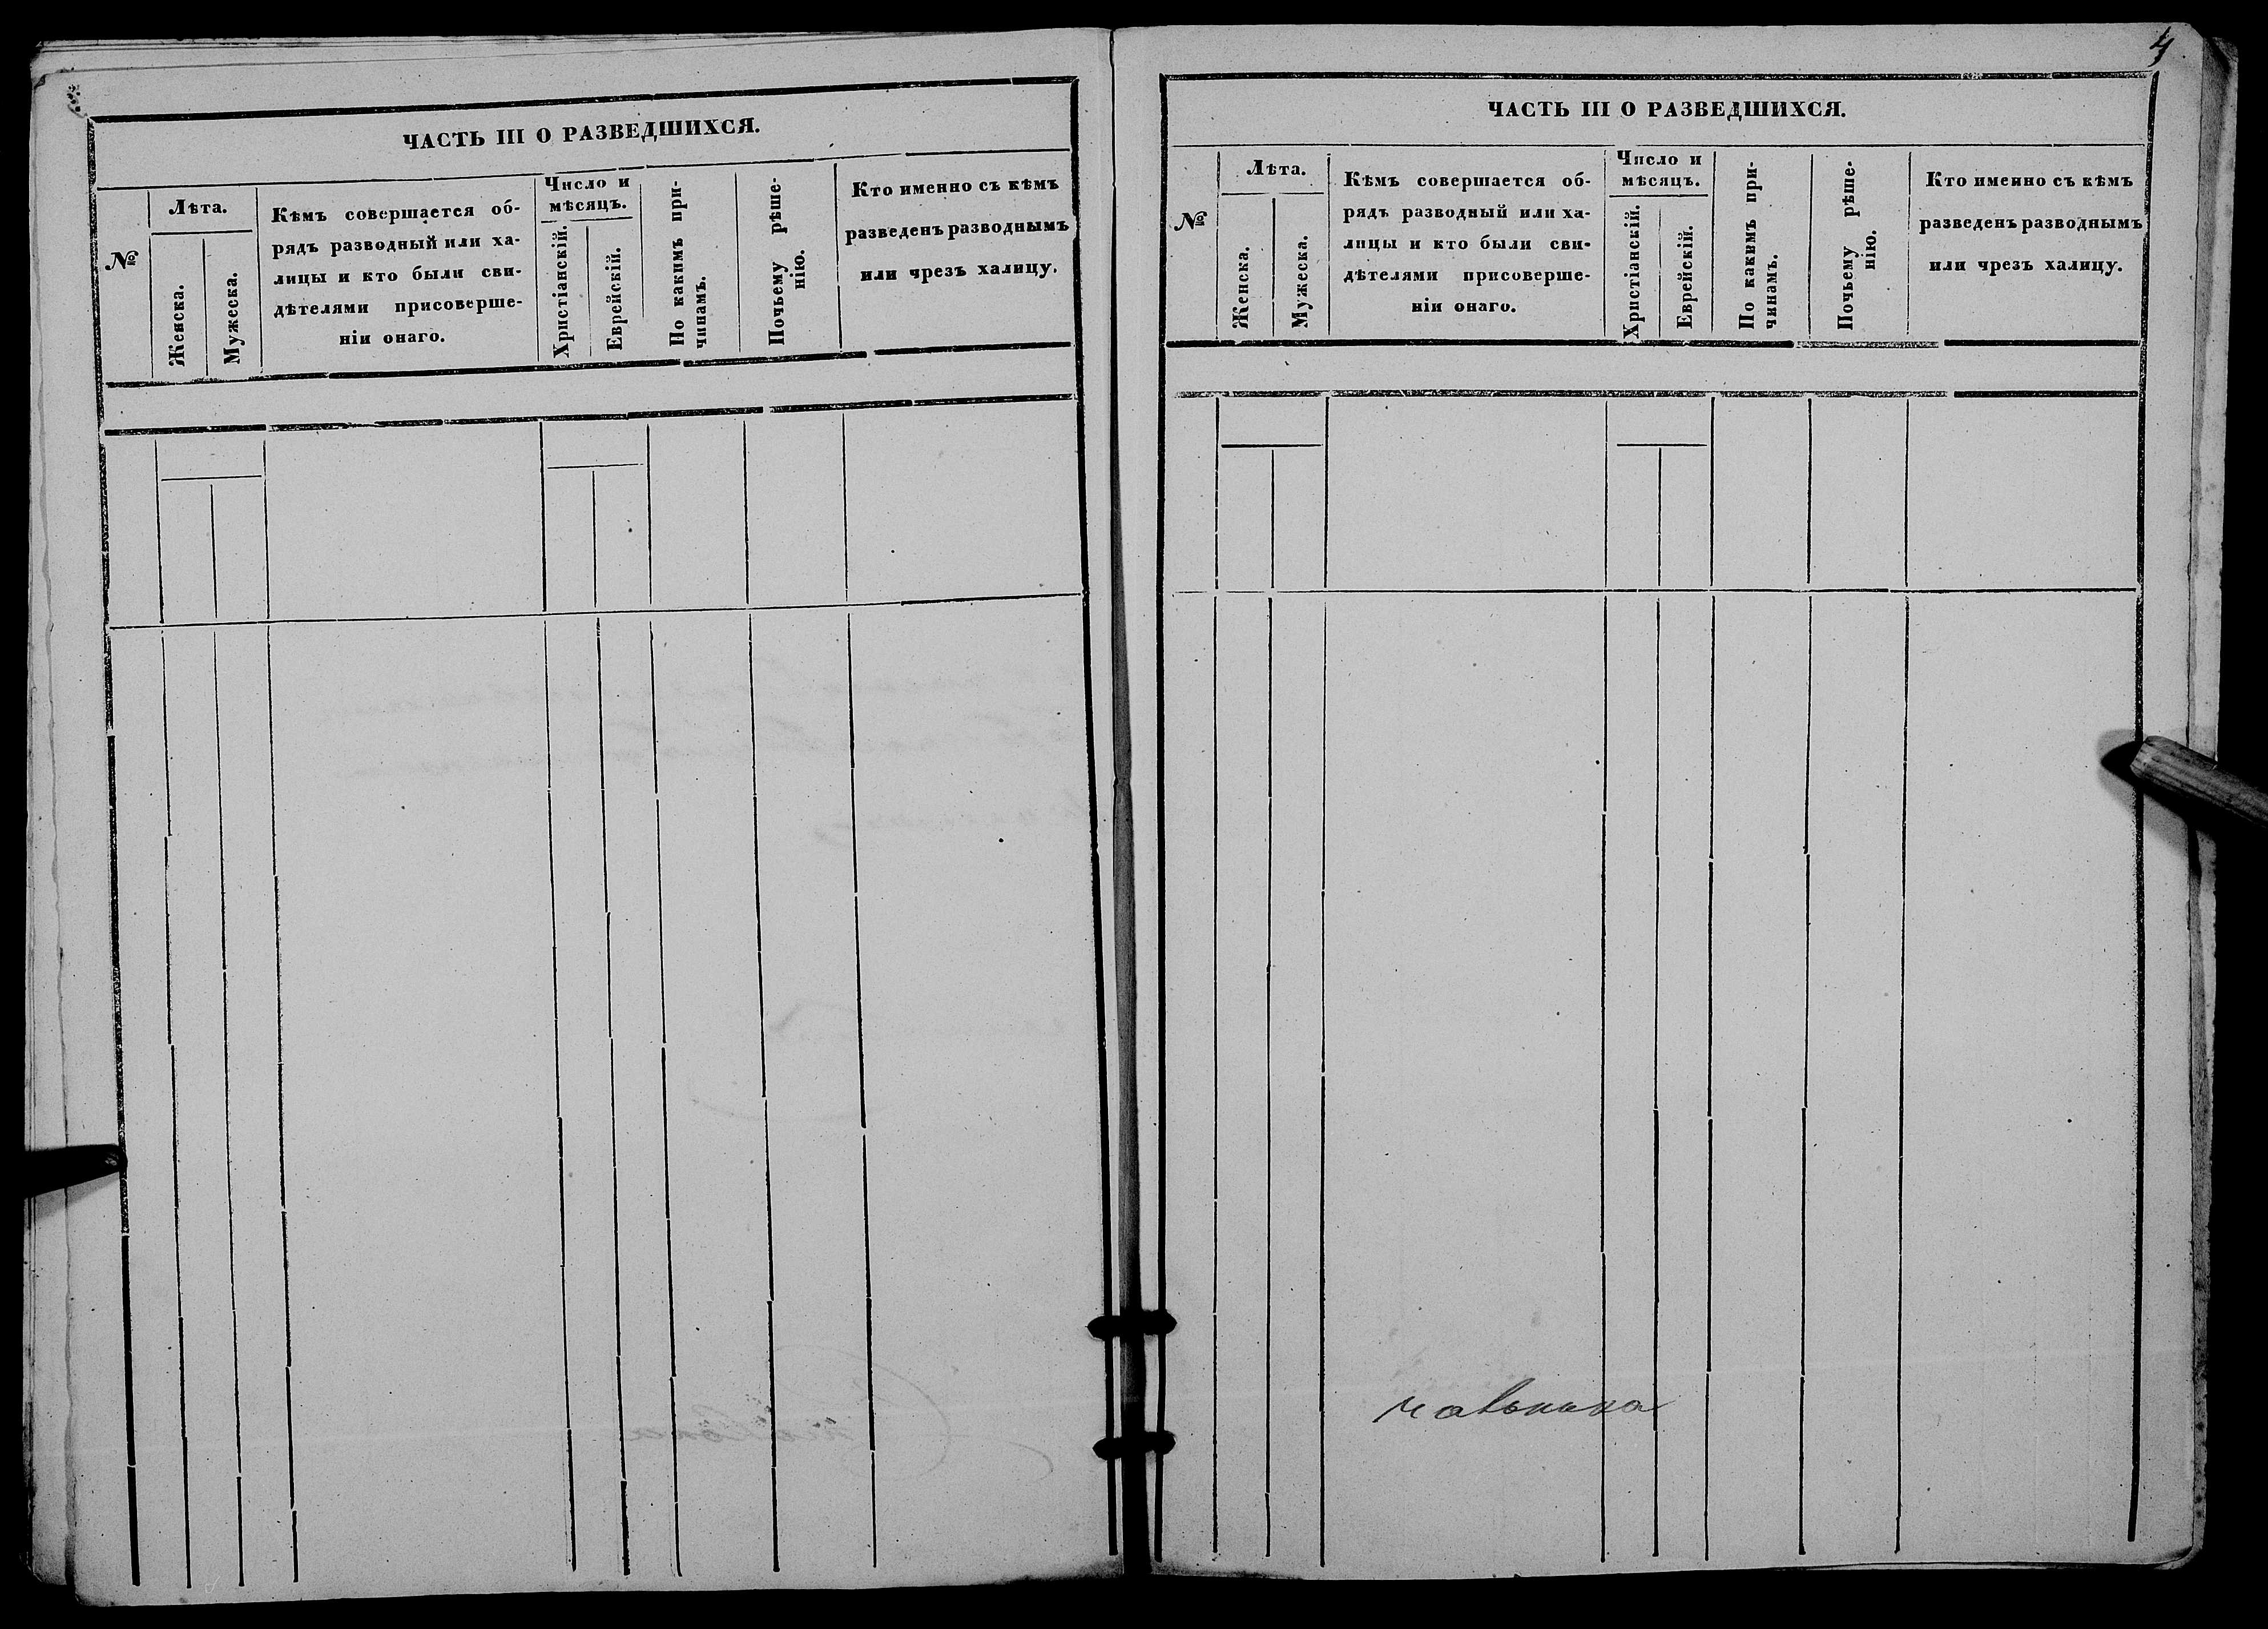 ЧАСТЬ III О РАЗВЕДШИХСЯ.
№
Лѣта.
Женска.
Мужеска.
Кѣмъ совершается об-
рядъ разводный или ха-
лицы и кто были сви-
дѣтелями присоверше-
ніи онаго.
Число и
мѣсяцъ.
Христіанскій.
Еврейскій.
По какимъ при-
чинамъ.
Почьему рѣше-
нію.
Кто именно съ кѣмъ
разведенъ разводнымъ
или чрезъ халицу.
4
ЧАСТЬ III О РАЗВЕДШИХСЯ.
№
Лѣта.
Женска.
Мужеска.
Кѣмъ совершается об-
рядъ разводный или ха-
лицы и кто были сви-
дѣтелями присоверше-
ніи онаго.
Число и
мѣсяцъ.
Христіанскій.
Еврейскій.
По какимъ при-
чинамъ.
Почьему рѣше-
нію.
Кто именно съ кѣмъ
разведенъ разводнымъ
или чрезъ халицу.